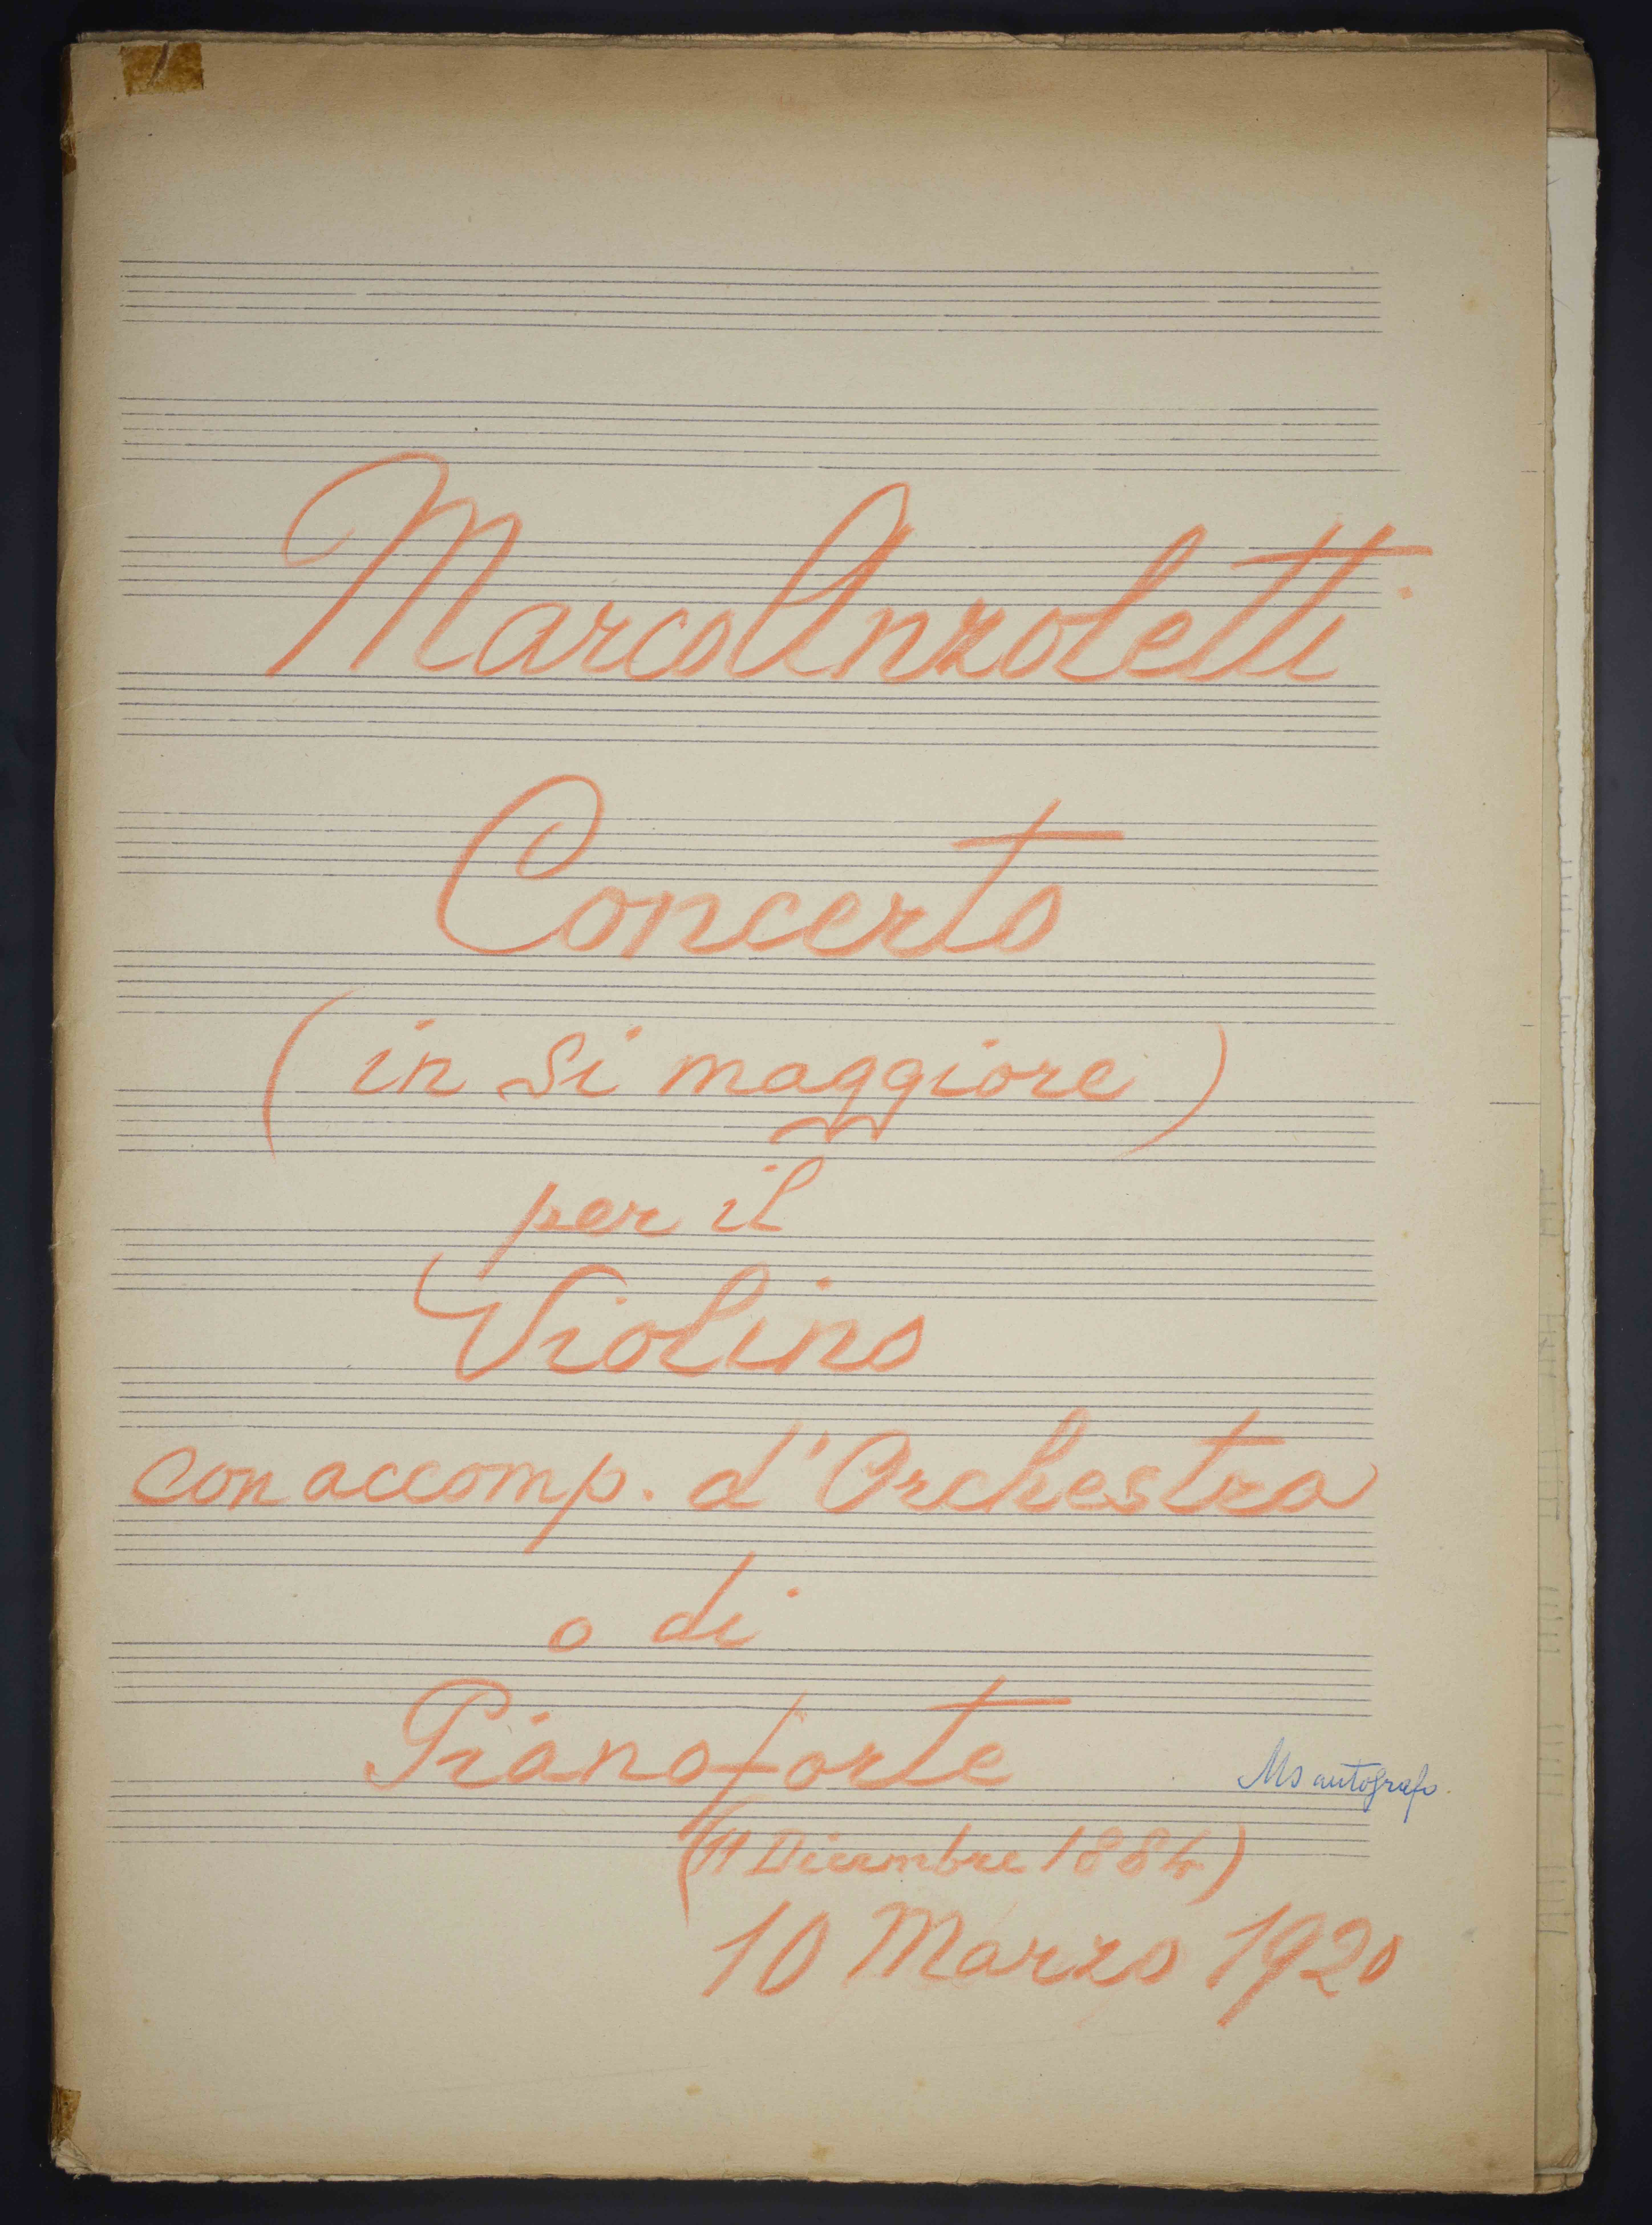 Marco Anzoletti
Concerto
(in Si maggiore)
per il
Violino
con accomp. d'Orchestra
o di
Pianoforte
Ms autografo.
(11 Dicembre 1884)
10 Marzo 1920